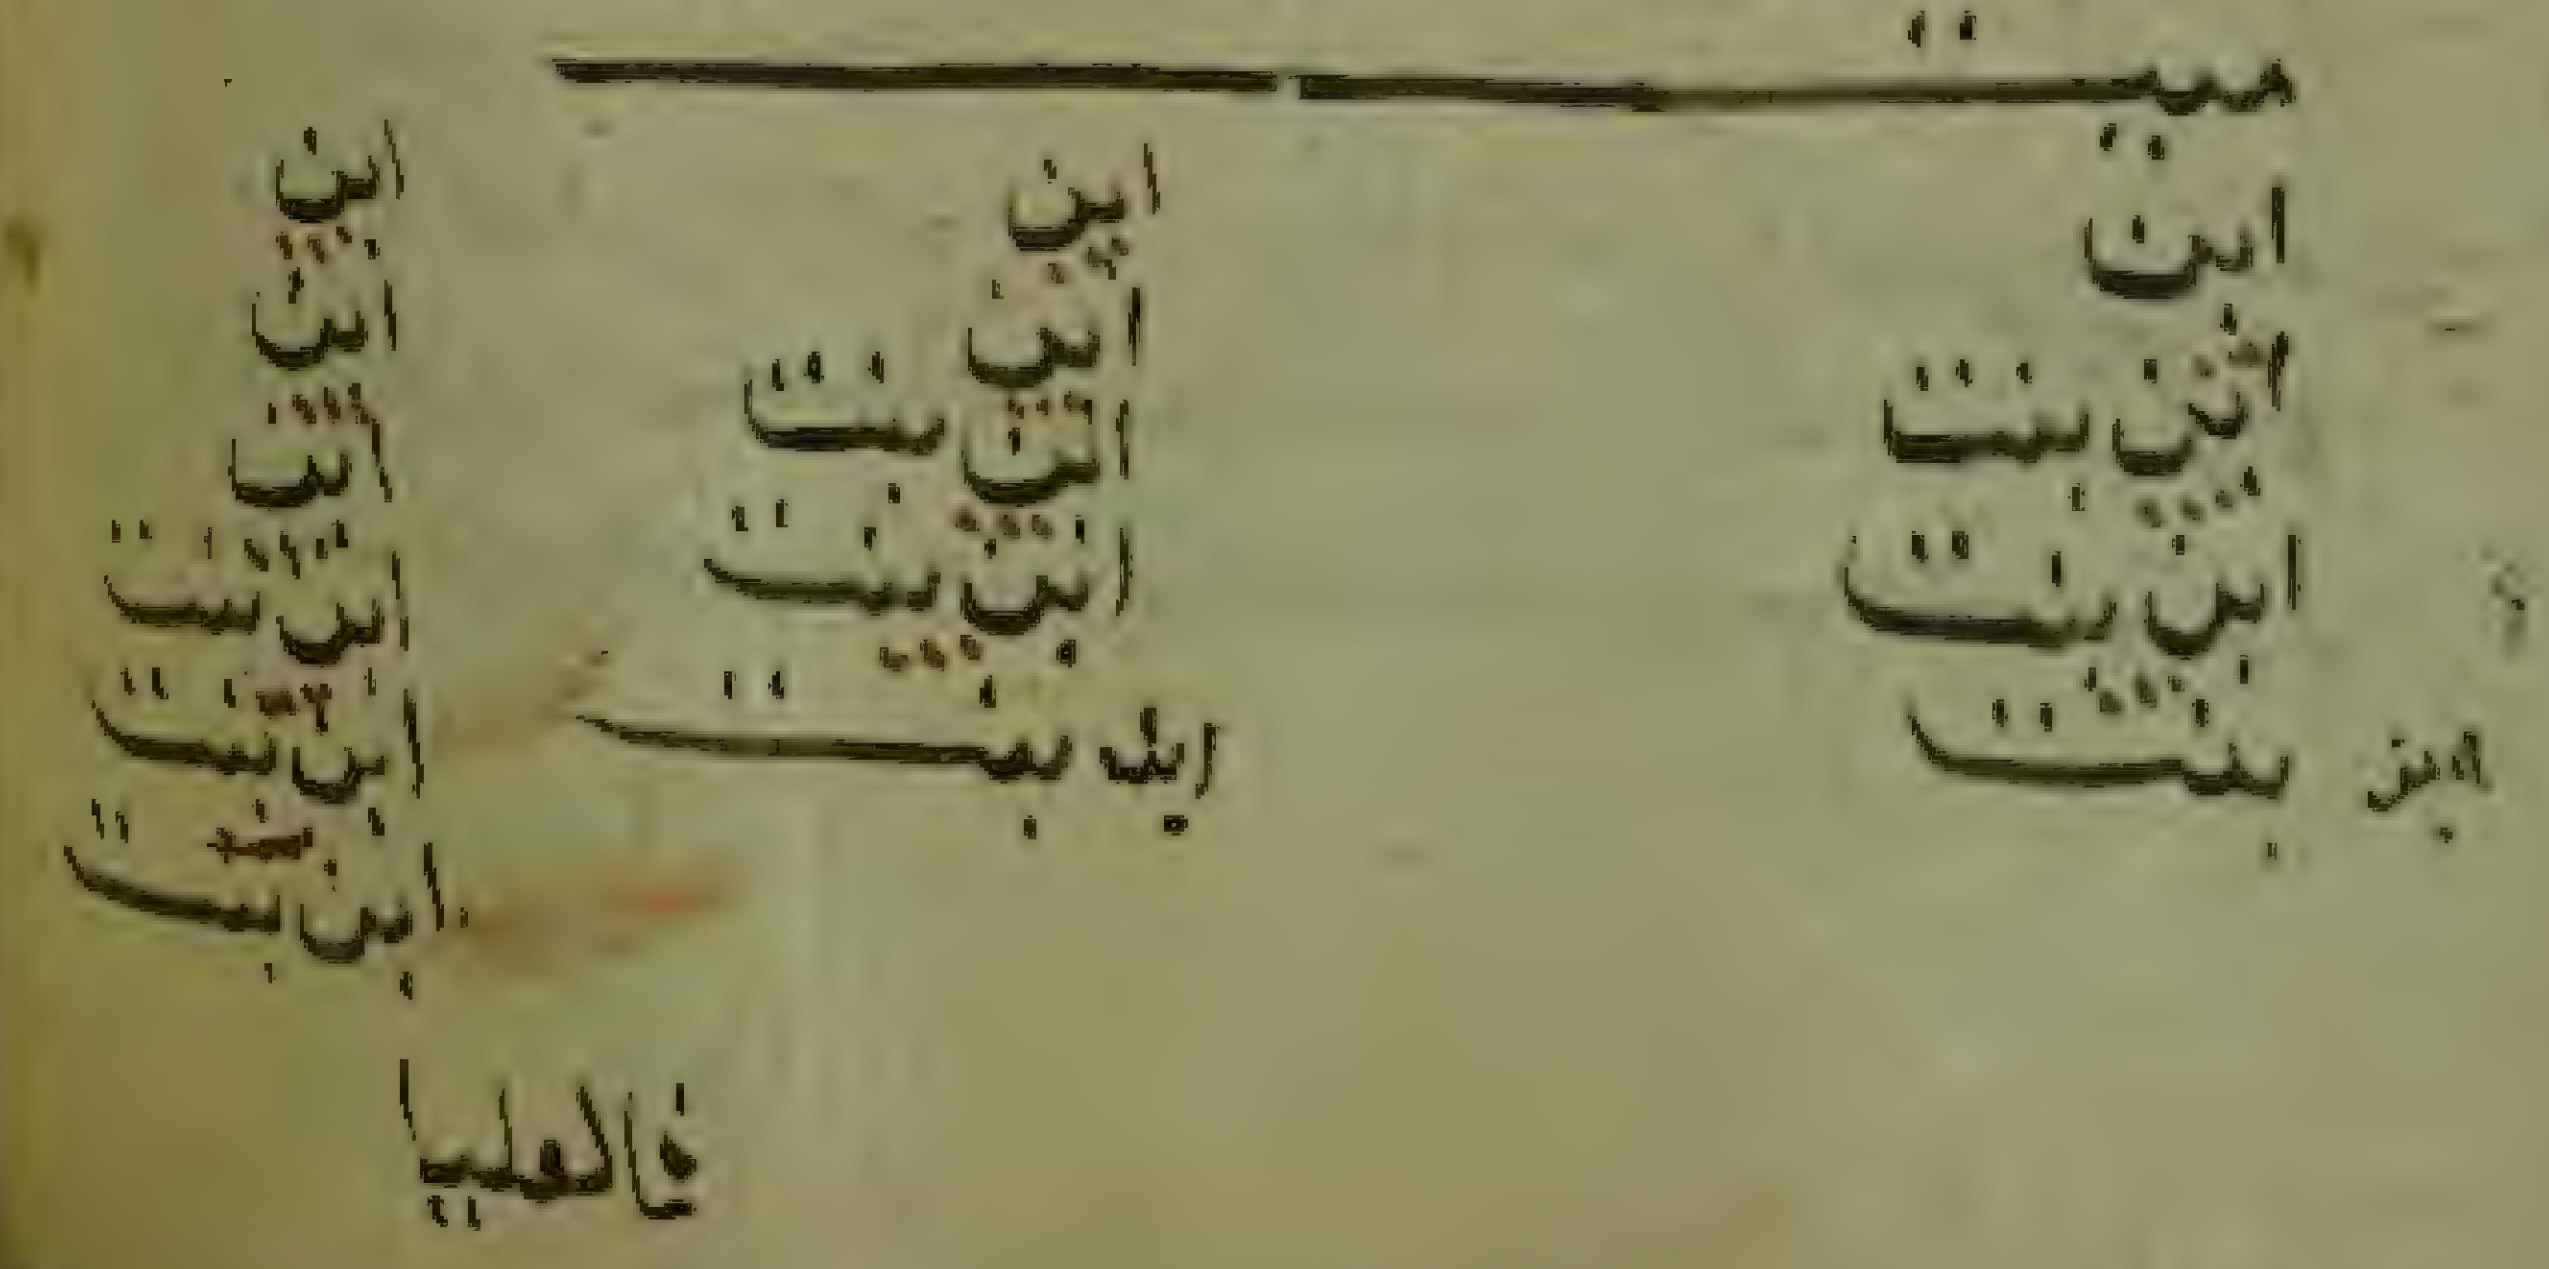 ميت
ابن
ابن بنت
ابن بنت
ابن بنت
ابن
ابن
ابن بنت
ابن بنت
ابن بنت
ابن
ابن
ابن
ابن بنت
ابن بنت
ابن بنت
فالعليا